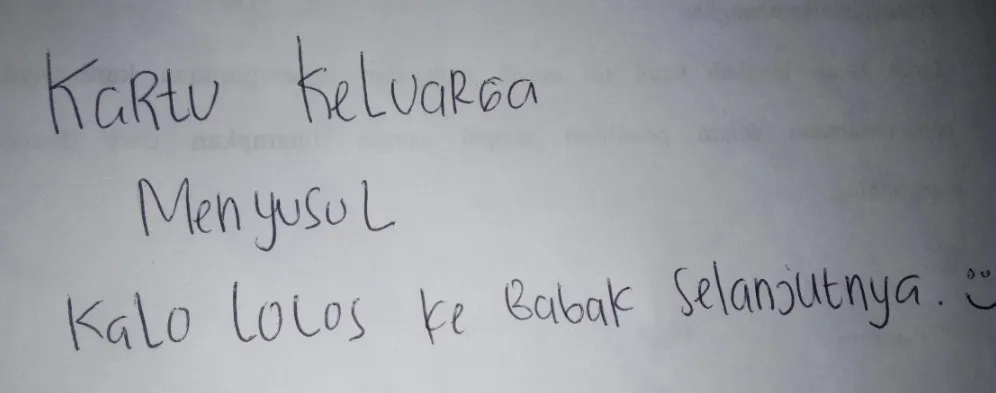 Kartu Keluarga
Menyusul
Kalo lolos ke Babak Selanjutnya. :)